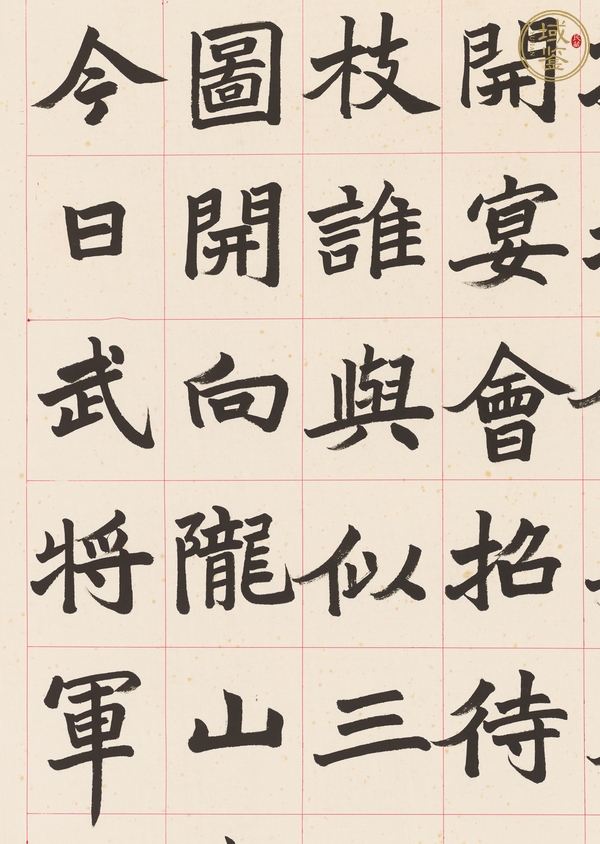 開宴會招待
枝誰與似三
圖開向隴山
今日武將軍
域鑒